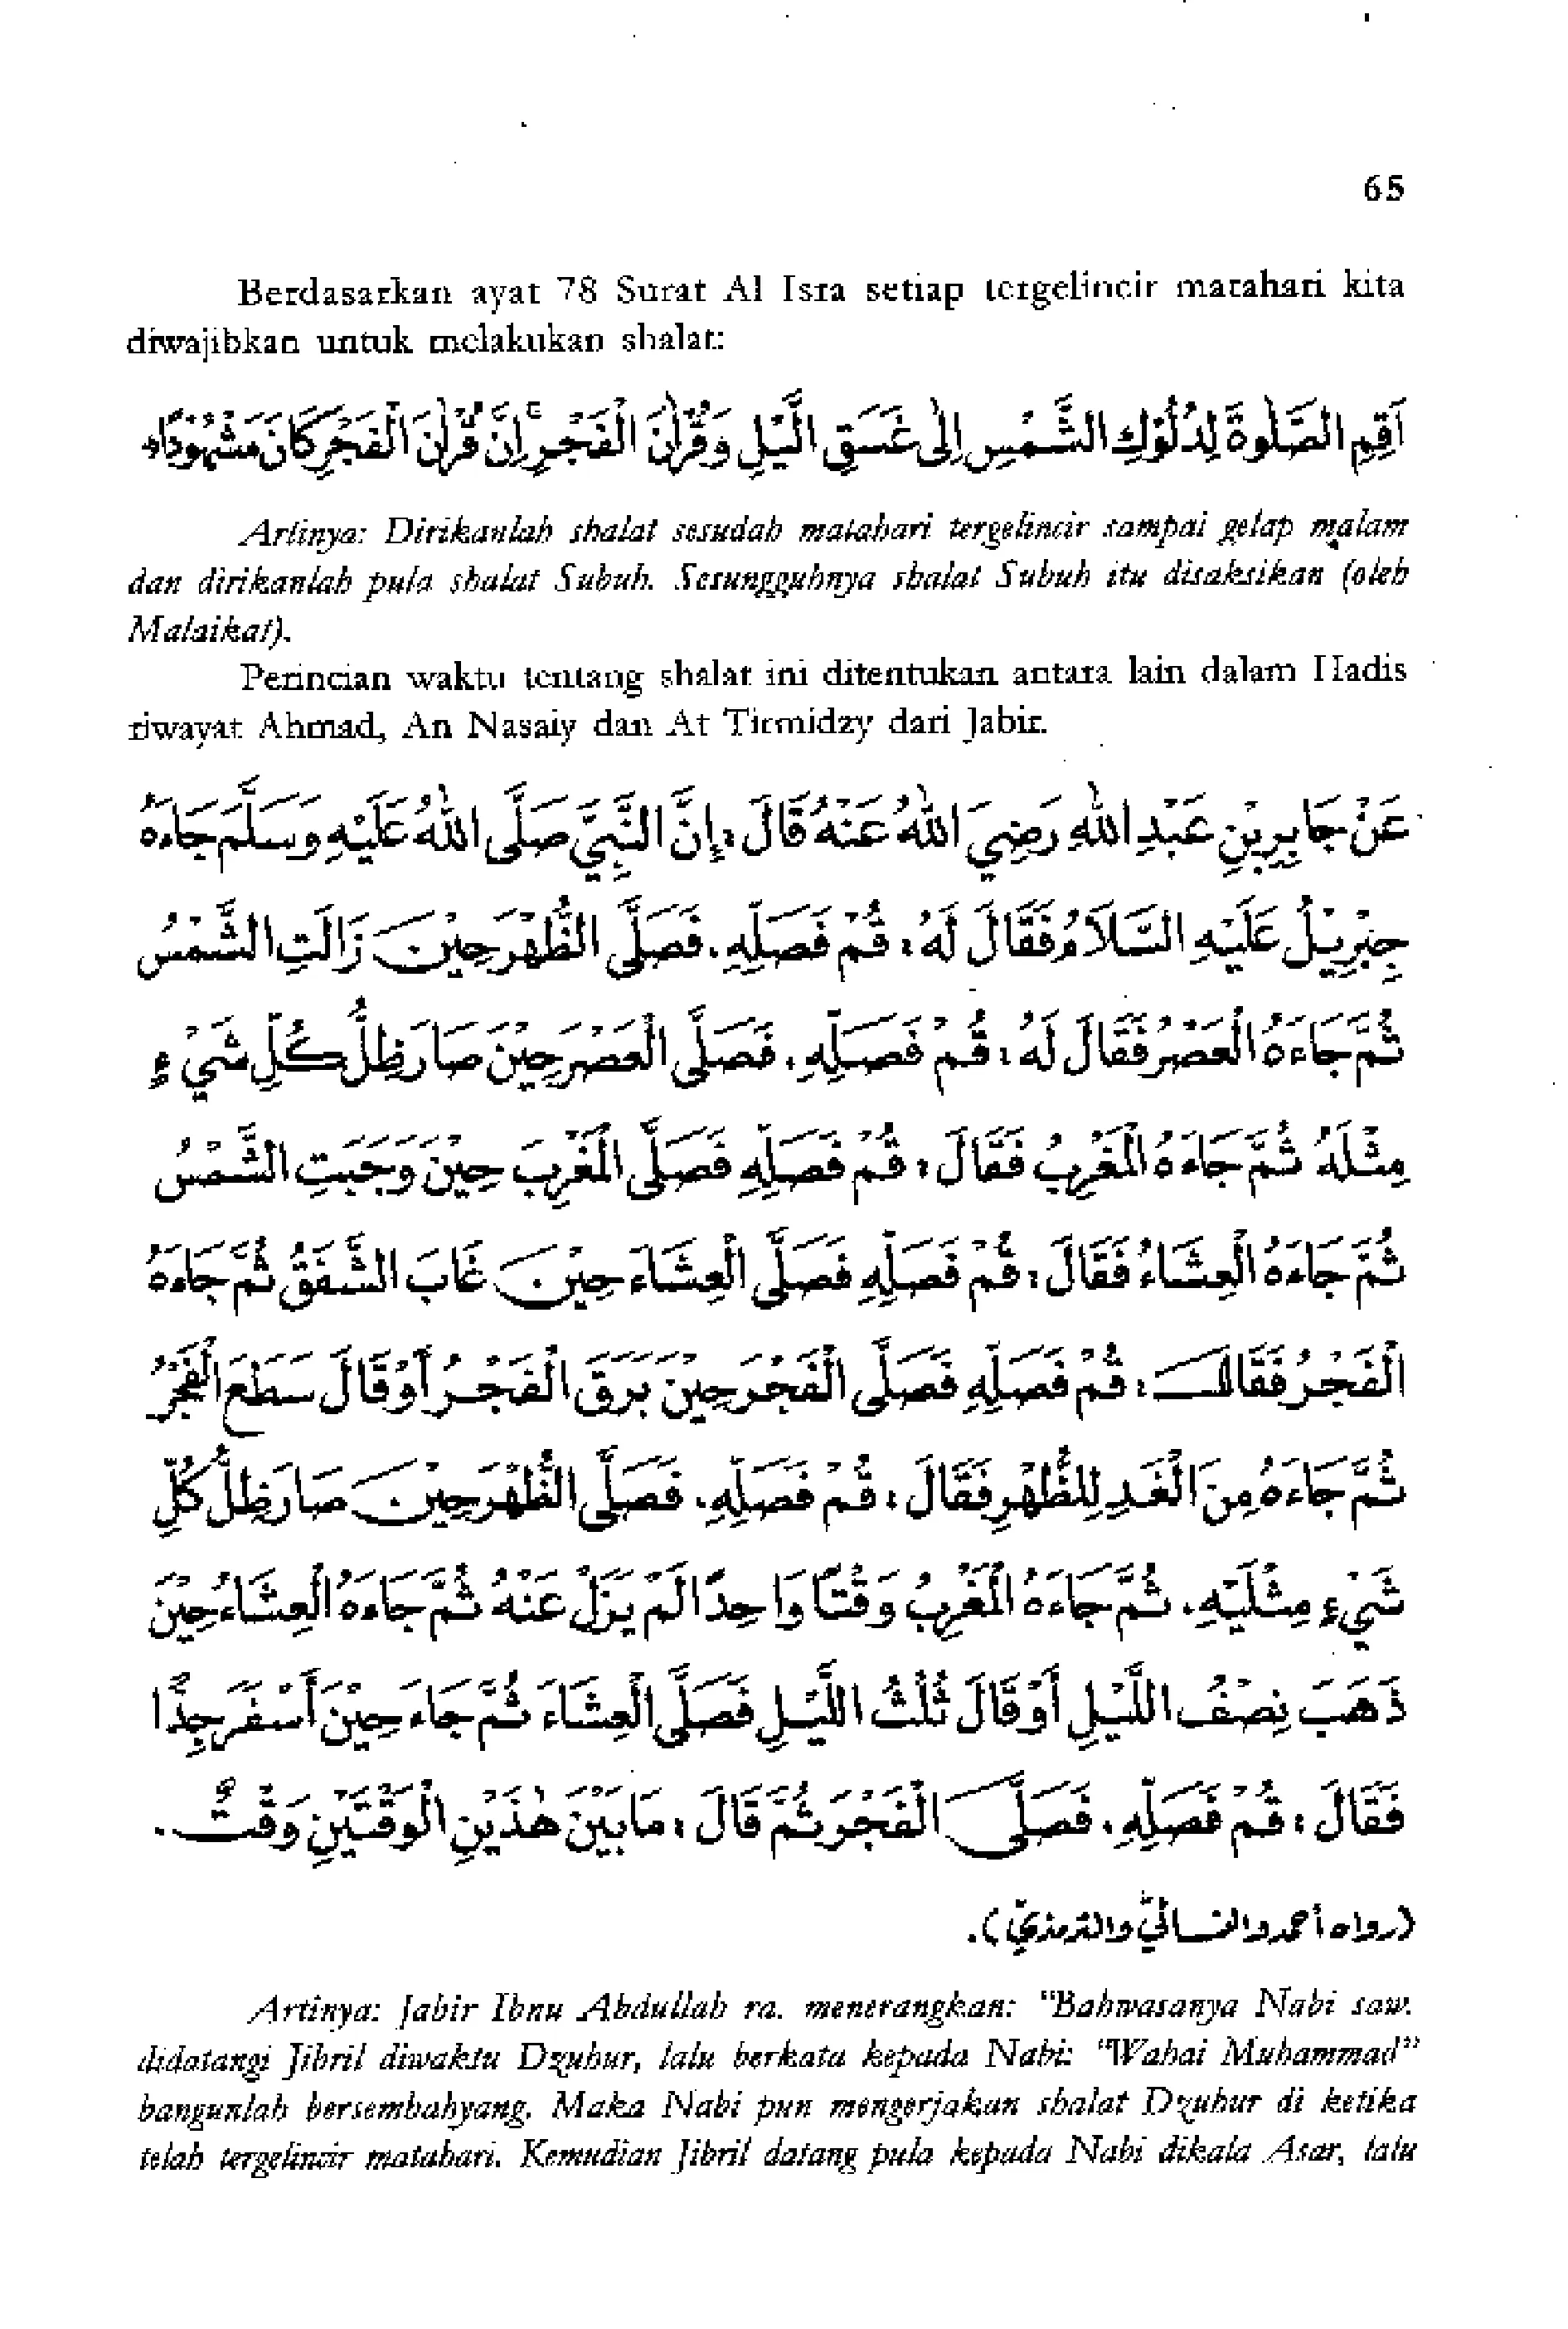 65
Berdasarkan ayat 78 Surat Al Isra setiap tergelincir matahari kita
diwajibkan untuk melakukan shalat:
أَقِمِ الصَّلٰوةَ لِدُلُوْكِ الشَّمْسِ اِلٰى غَسَقِ الَّيْلِ وَقُرْاٰنَ الْفَجْرِ ۚ اِنَّ قُرْاٰنَ الْفَجْرِ كَانَ مَشْهُوْدًا
Artinya: Dirikanlah shalat sesudah matahari tergelincir sampai gelap malam
dan dirikanlah pula shalat Subuh. Sesungguhnya shalat Subuh itu disaksikan (oleh
Malaikat).
Perincian waktu tentang shalat ini ditentukan antara lain dalam Hadis
riwayat Ahmad, An Nasaiy dan At Tirmidzy dari Jabir.
عَنْ جَابِرِ بْنِ عَبْدِ اللهِ رَضِيَ اللهُ عَنْهُ قَالَ : إِنَّ النَّبِيَّ صَلَّى اللهُ عَلَيْهِ وَسَلَّمَ جَاءَهُ
جِبْرِيْلُ عَلَيْهِ السَّلَامُ فَقَالَ لَهُ : قُمْ فَصَلِّهِ. فَصَلَّى الظُّهْرَ حِيْنَ زَالَتِ الشَّمْسُ
ثُمَّ جَاءَهُ الْعَصْرُ فَقَالَ لَهُ : قُمْ فَصَلِّهِ. فَصَلَّى الْعَصْرَ حِيْنَ صَارَ ظِلُّ كُلِّ شَيْءٍ
مِثْلَهُ ثُمَّ جَاءَهُ الْمَغْرِبُ فَقَالَ : قُمْ فَصَلِّهِ فَصَلَّى الْمَغْرِبَ حِيْنَ وَجَبَتِ الشَّمْسُ
ثُمَّ جَاءَهُ الْعِشَاءُ فَقَالَ : قُمْ فَصَلِّهِ فَصَلَّى الْعِشَاءَ حِيْنَ غَابَ الشَّفَقُ ثُمَّ جَاءَهُ
الْفَجْرُ فَقَالَ : قُمْ فَصَلِّهِ فَصَلَّى الْفَجْرَ حِيْنَ بَرَقَ الْفَجْرُ أَوْ قَالَ سَطَعَ الْفَجْرُ
ثُمَّ جَاءَهُ مِنَ الْغَدِ لِلظُّهْرِ فَقَالَ : قُمْ فَصَلِّهِ. فَصَلَّى الظُّهْرَ حِيْنَ صَارَ ظِلُّ كُلِّ
شَيْءٍ مِثْلَيْهِ. ثُمَّ جَاءَهُ الْمَغْرِبُ وَقْتًا وَاحِدًا لَمْ يَزُلْ عَنْهُ ثُمَّ جَاءَهُ الْعِشَاءُ حِيْنَ
ذَهَبَ نِصْفُ اللَّيْلِ أَوْ قَالَ ثُلُثُ اللَّيْلِ فَصَلَّى الْعِشَاءَ ثُمَّ جَاءَ حِيْنَ أَسْفَرَ جِدًّا
فَقَالَ : قُمْ فَصَلِّهِ. فَصَلَّى الْفَجْرَ ثُمَّ قَالَ : مَابَيْنَ هٰذَيْنِ الْوَقْتَيْنِ وَقْتٌ.
(رواه أحمد والنسائيّ والترمذيّ).
Artinya: Jabir Ibnu Abdullah ra. menerangkan: "Bahwasanya Nabi saw.
didatangi Jibril diwaktu Dzuhur, lalu berkata kepada Nabi: "Wahai Muhammad"
bangunlah bersembahyang. Maka Nabi pun mengerjakan shalat Dzuhur di ketika
telah tergelincir matahari. Kemudian Jibril datang pula kepada Nabi dikala Asar, lalu